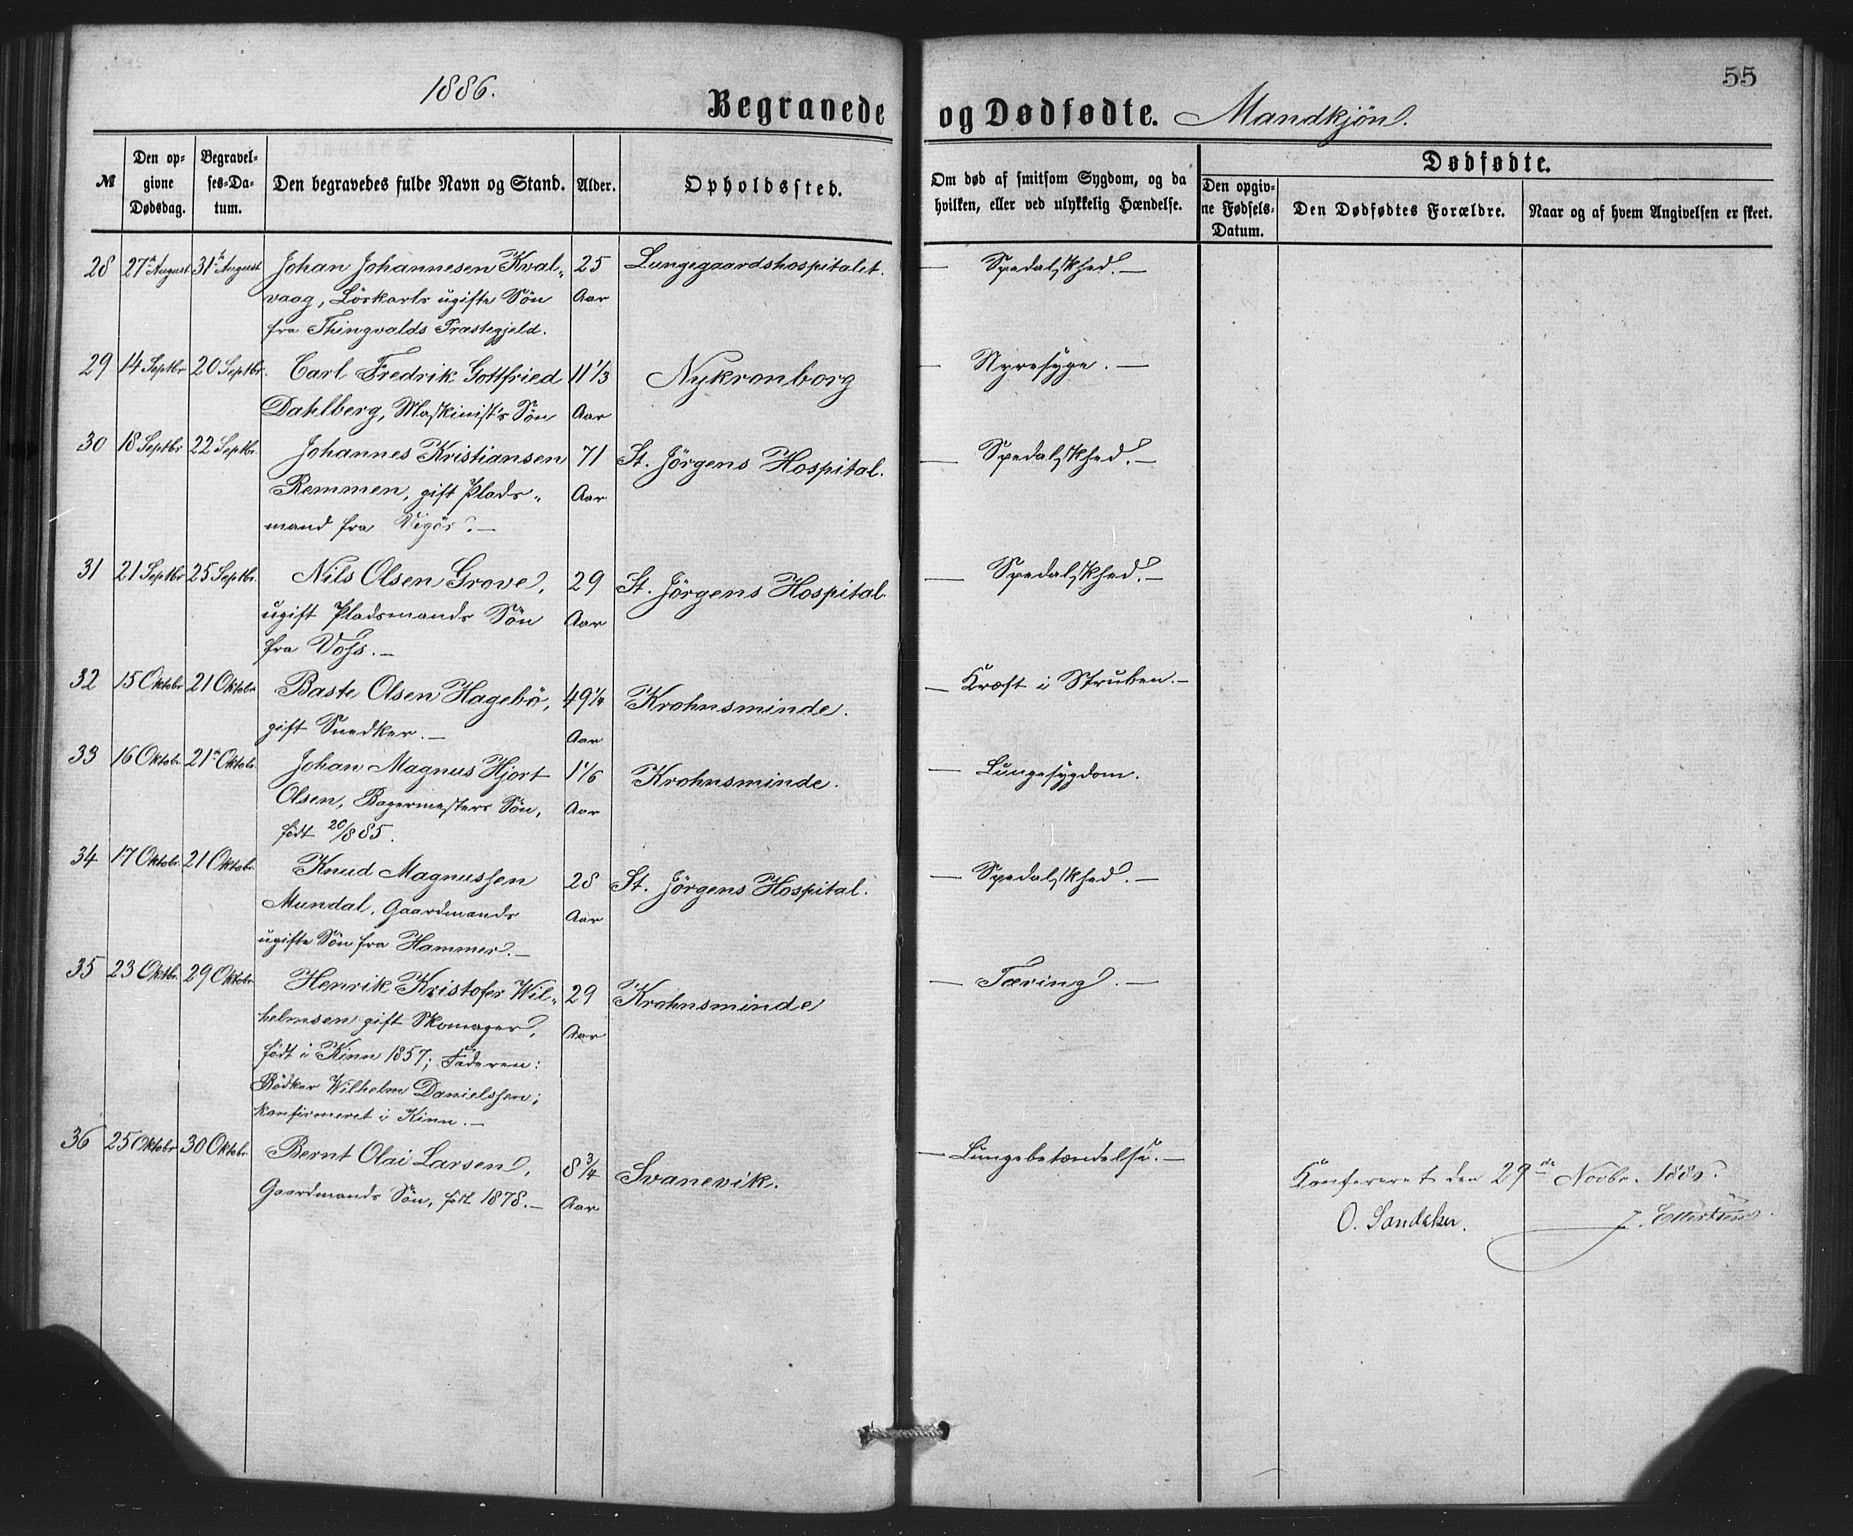 1886.
55
Begravede og Dødfødte. Mandkjøn.
№
Den opgivne Dødsdag.
Begravelses-Datum.
Den begravedes fulde Navn og Stand.
Alder.
Opholdssted.
Om død af smitsom Sygdom, og da hvilken, eller ved ulykkelig Hændelse.
Dødfødte.
Den opgivne Fødsels-Datum.
Den Dødfødtes Forældre.
Naar og af hvem Angivelsen er skeet.
28 27 August 31 August Johan Johannesen Kval- 25 Lungegaardshospitalet. — Spedalskhed. —
vaag, Löskarls ugifte Sön Aar
fra Thingvalds Præstegjeld.
29 14 Septbr 20 Septbr. Carl Fredrik Gottfried 11 1/3 Nykronborg — Nyresyge. —
Dahlberg, Maskinist's Sön Aar
30 18 Septbr 22 Septbr. Johannes Kristiansen 71 St. Jörgens Hospital. — Spedalskhed. —
Remmen, gift Plads- Aar
mand fra
31 21 Septbr 25 Septbr. Nils Olsen Grove, 29 St. Jörgens Hospital — Spedalskhed. —
ugift Pladsmands Sön Aar
fra Voss. —
32 15 Oktobr 21 Oktobr Baste Olsen Hagebö, 49 1/4 Krohnsminde. — Kræft i Struben. —
gift Snedker. — Aar
33 16 Oktobr. 21 Oktobr. Johan Magnus Hjort 1 1/6 Krohnsminde. — Lungesygdom.
Olsen, Bagermesters Sön, Aar
födt 20/8 85.
34 17 Oktobr. 21 Oktobr. Knud Magnussen 28 St. Jörgens Hospital. — Spedalskhed. —
Mundal, Gaardmands Aar
ugifte Sön fra Hammer. —
35 23 Oktbr. 29 Oktobr. Henrik Kristofer Wil- 29 Krohnsminde — Tæring. —
helmsen gift Skomager, Aar
födt i Kinn 1857; Faderen:
Bödker Wilhelm Danielssen;
konfirmeret i Kinn. —
36 25 Oktobr 30 Oktobr. Bernt Olai Larsen, 8 3/4 Svanevik. — Lungebetændelse. —
Gaardmands Sön, födt 1878. — Aar
Konfereret den 29de Novbr. 1886.
O. Sandaker. J.